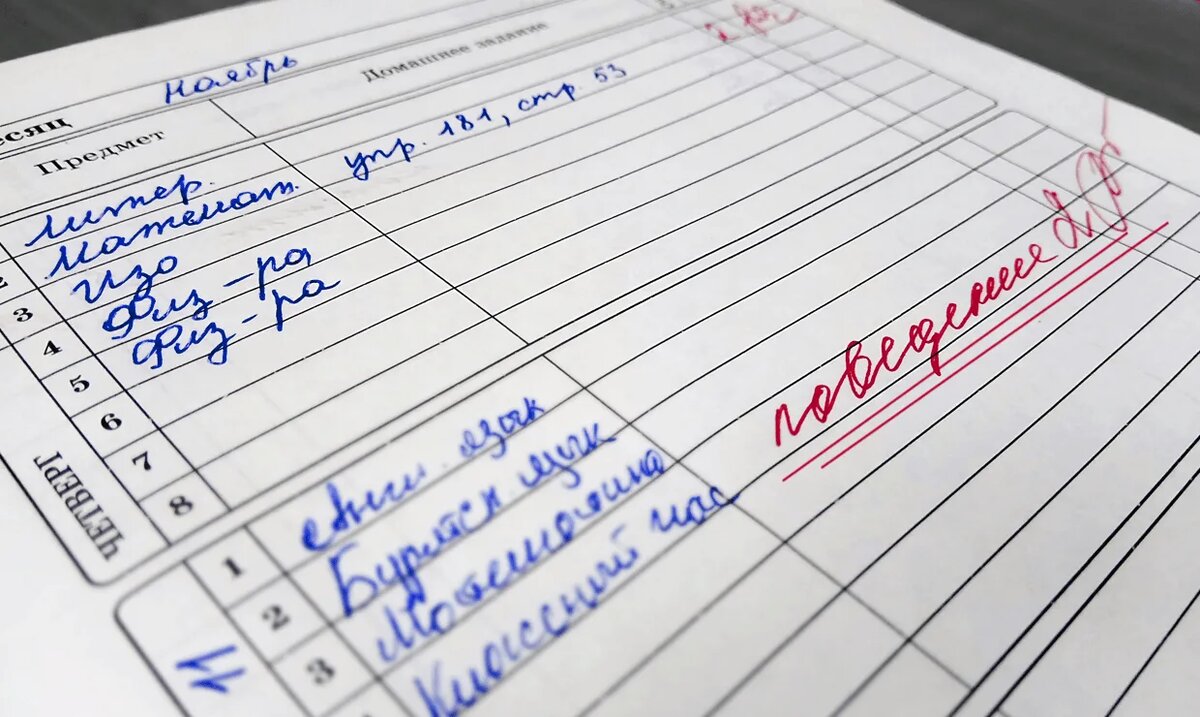 есяц ноябрь
Предмет Домашнее задание
литер.
2 Математ. упр. 181, стр. 53
3 Изо
4 Физ-ра
5 Физ-ра
6
7
8
ЧЕТВЕРГ
поведение 2
1 Англ. язык
2 Бурятск язык
3 Математика
Классный час
11